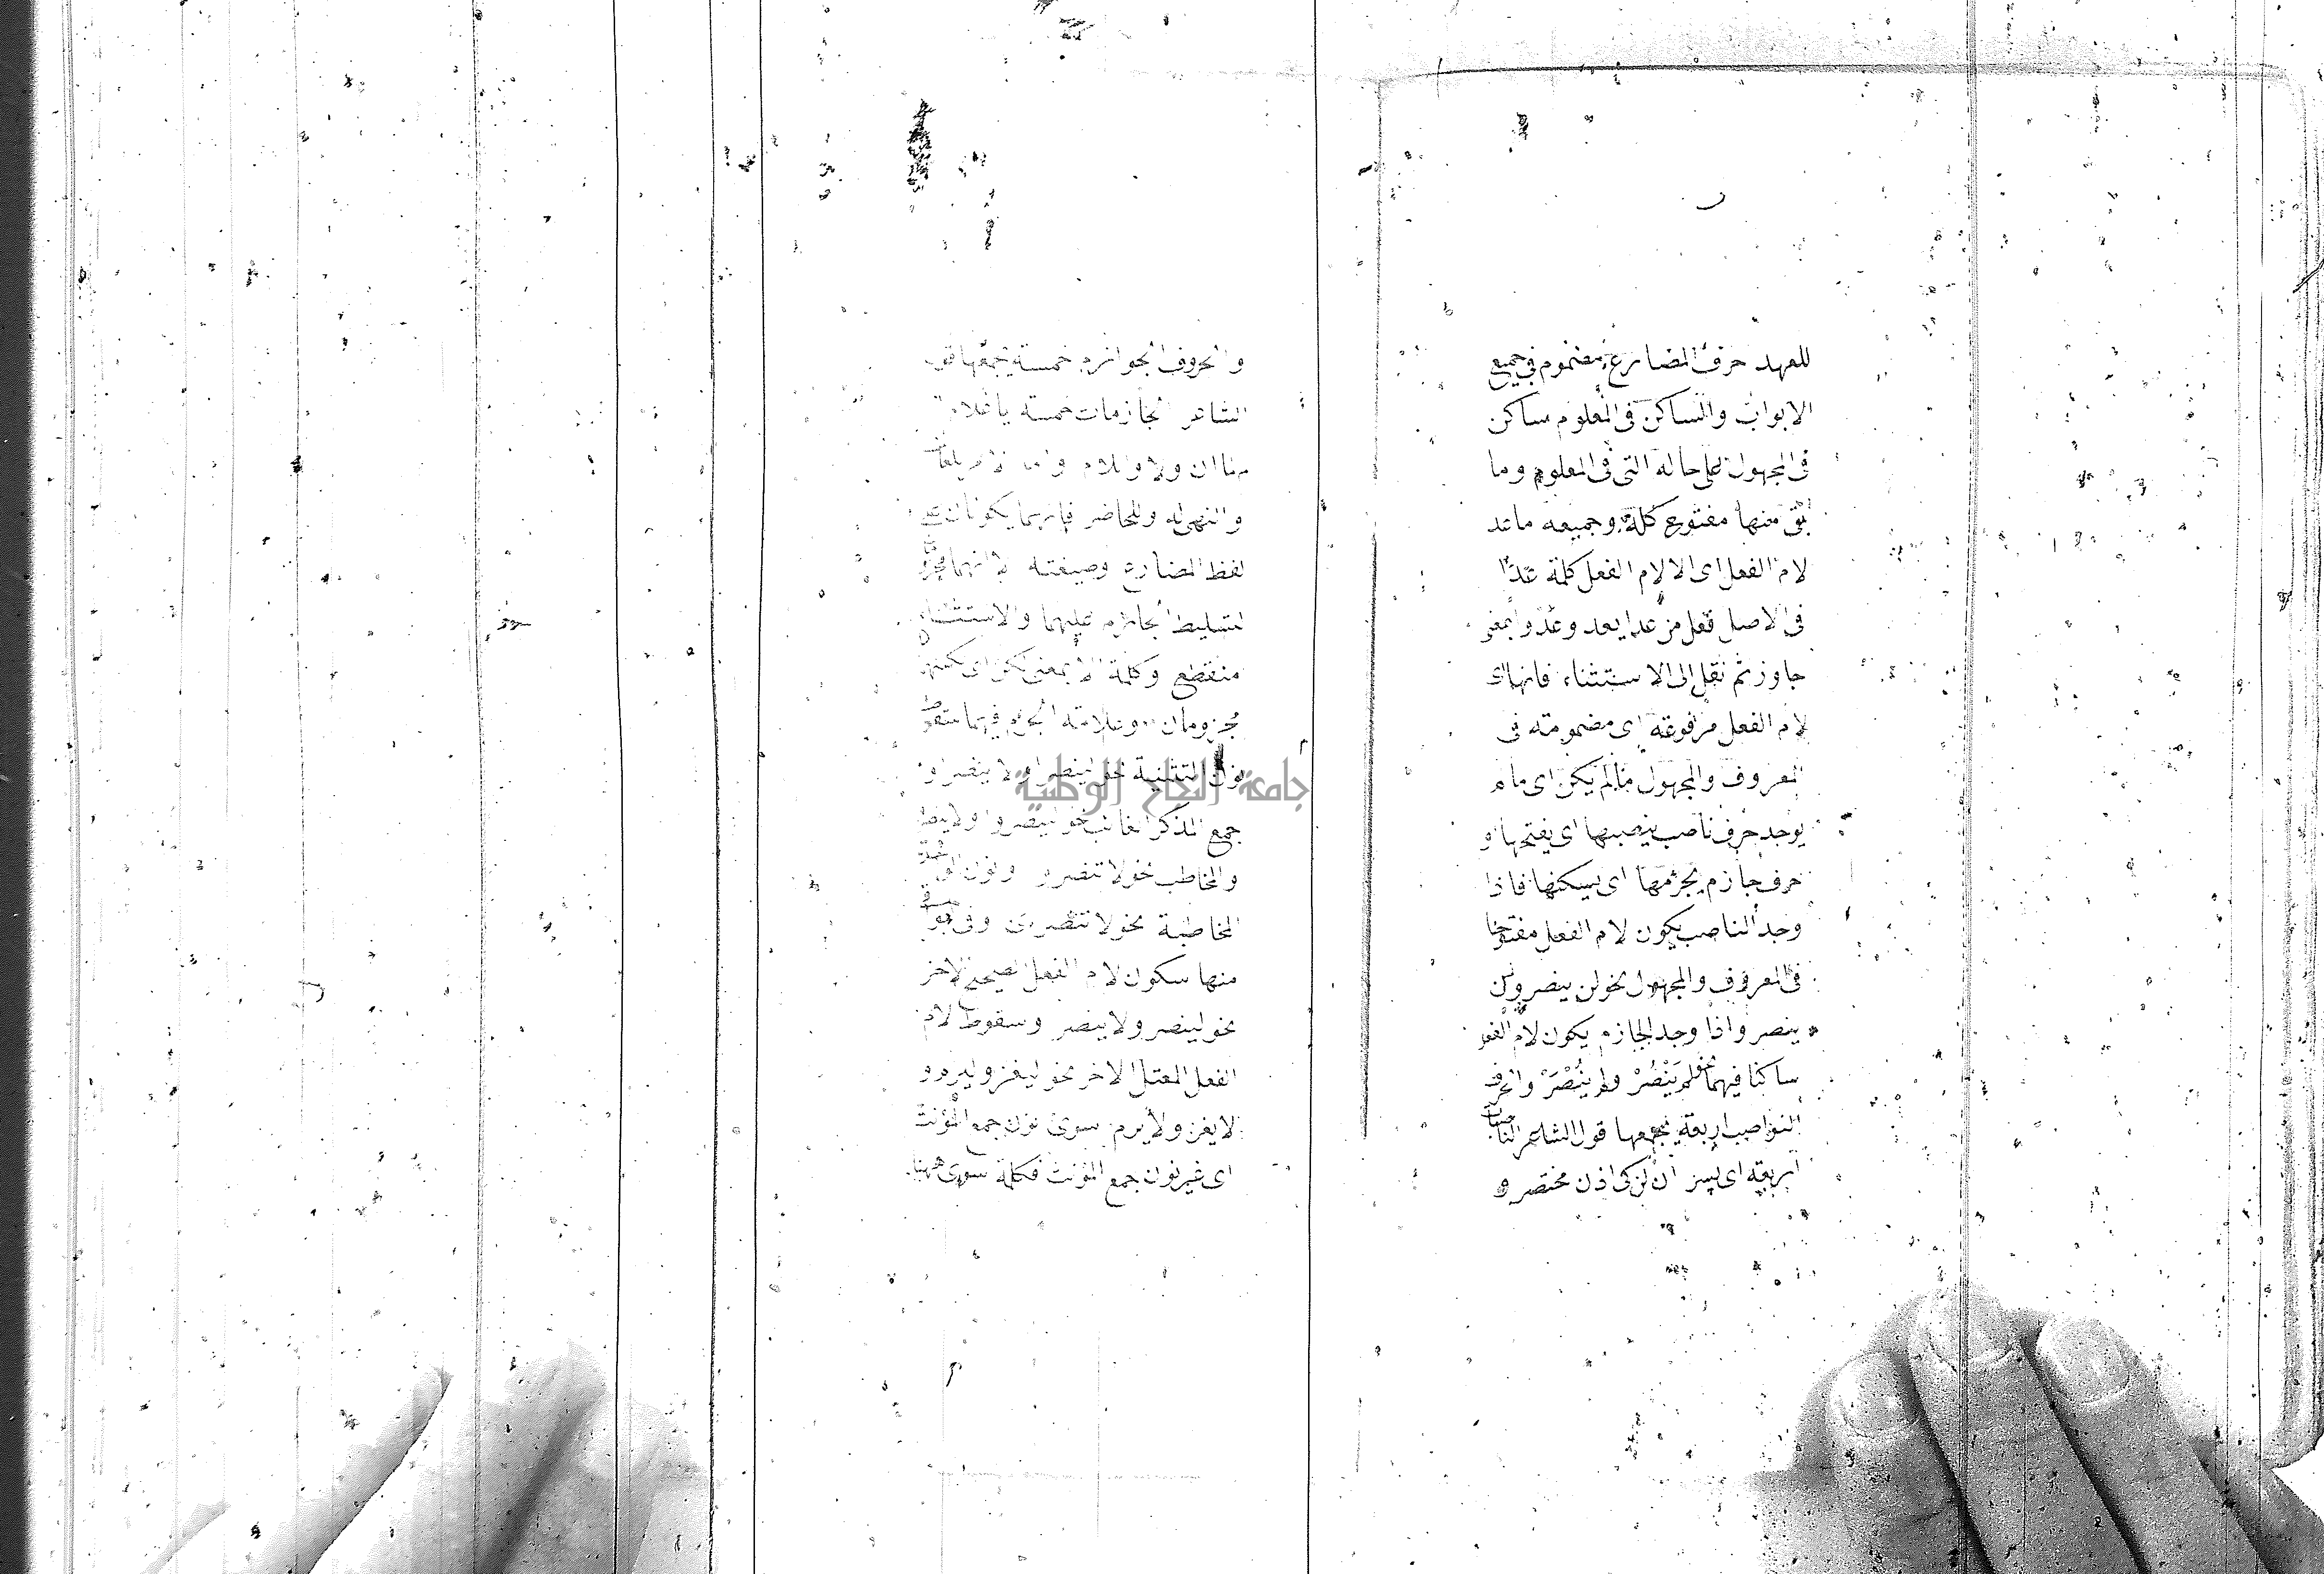 للعهد حرف المضارع مضموم فى جميع
الابواب والساكن فى المعلوم ساكن
فى المجهول على حاله التى فى المعلوم وما
بقى منها مفتوح كله وجميعه ما عد
لام الفعل اى الا لام الفعل كلمة عدا
فى الاصل فعل من عدا يعد وعدوا بمعنى
جاوز ثم نقل الى الاستثناء فانها اى
لام الفعل مرفوعة اى مضمومته فى
المعروف والمجهول ما لم يكن اى ما لم
يوجد حرف ناصب ينصبها اى يفتحها او
حرف جازم يجزمها اى يسكنها فاذا
وجد الناصب يكون لام الفعل مفتوحا
فى المعروف والمجهول نحو لن ينصر ولن
ينصر واذا وجد الجازم يكون لام الفعل
ساكنا فيهما نحو لم يَنْصُرْ ولم يُنْصَرْ والحرف
النواصب اربعة يجمعها قول الشاعر الناصبات
اربعة اى يسر ان لن كى اذن مختصر و
والحروف الجوازم خمسة يجمعها قول
الشاعر الجازمات خمسة يا غلام
ان ولا واللام
والنهى له وللحاضر فانهما يكونان على
لفظ المضارع وصيغته لانهما
لتسليط الجازم عليهما والاستثناء
منقطع وكلمة الا بمعنى لكن اى لكنهما
مجزومان وعلامة الجزم فيهما سقوط
نون التثنية نحو لينصرا ولا ينصرا و
جمع المذكر الغائب نحو لينصروا ولا ينصروا
والمخاطب نحو لا تنصروا ونون الواحدة
المخاطبة نحو لا تنصرى وفى البواقى
منها سكون لام الفعل الصحيح الاخر
نحو لينصر ولا ينصر وسقوط لام
الفعل المعتل الاخر نحو ليغز وليرم و
لا يغز ولا يرم سوى نون جمع المؤنث
اى غير نون جمع المؤنث فكلمة سوى ههنا
جامعة النجاح الوطنية